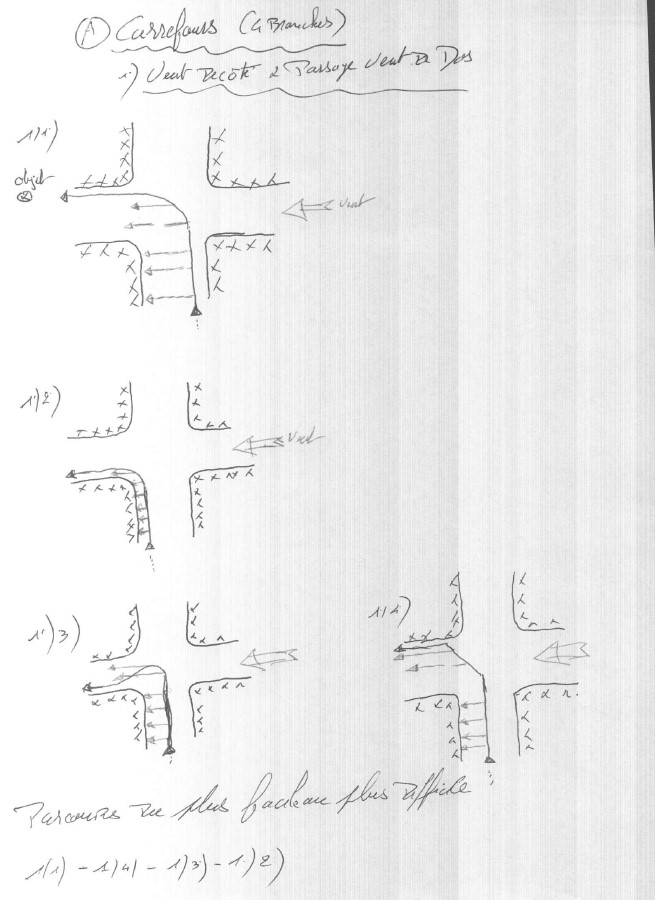 A Carrefours (4 Branches)
1) Vent de côté & Passage Vent de Dos
1)1)
objet
Vent
1)2)
Vent
1)3)
1)4)
Parcours du plus facile au plus difficile :
1)1) - 1)4) - 1)3) - 1)2)